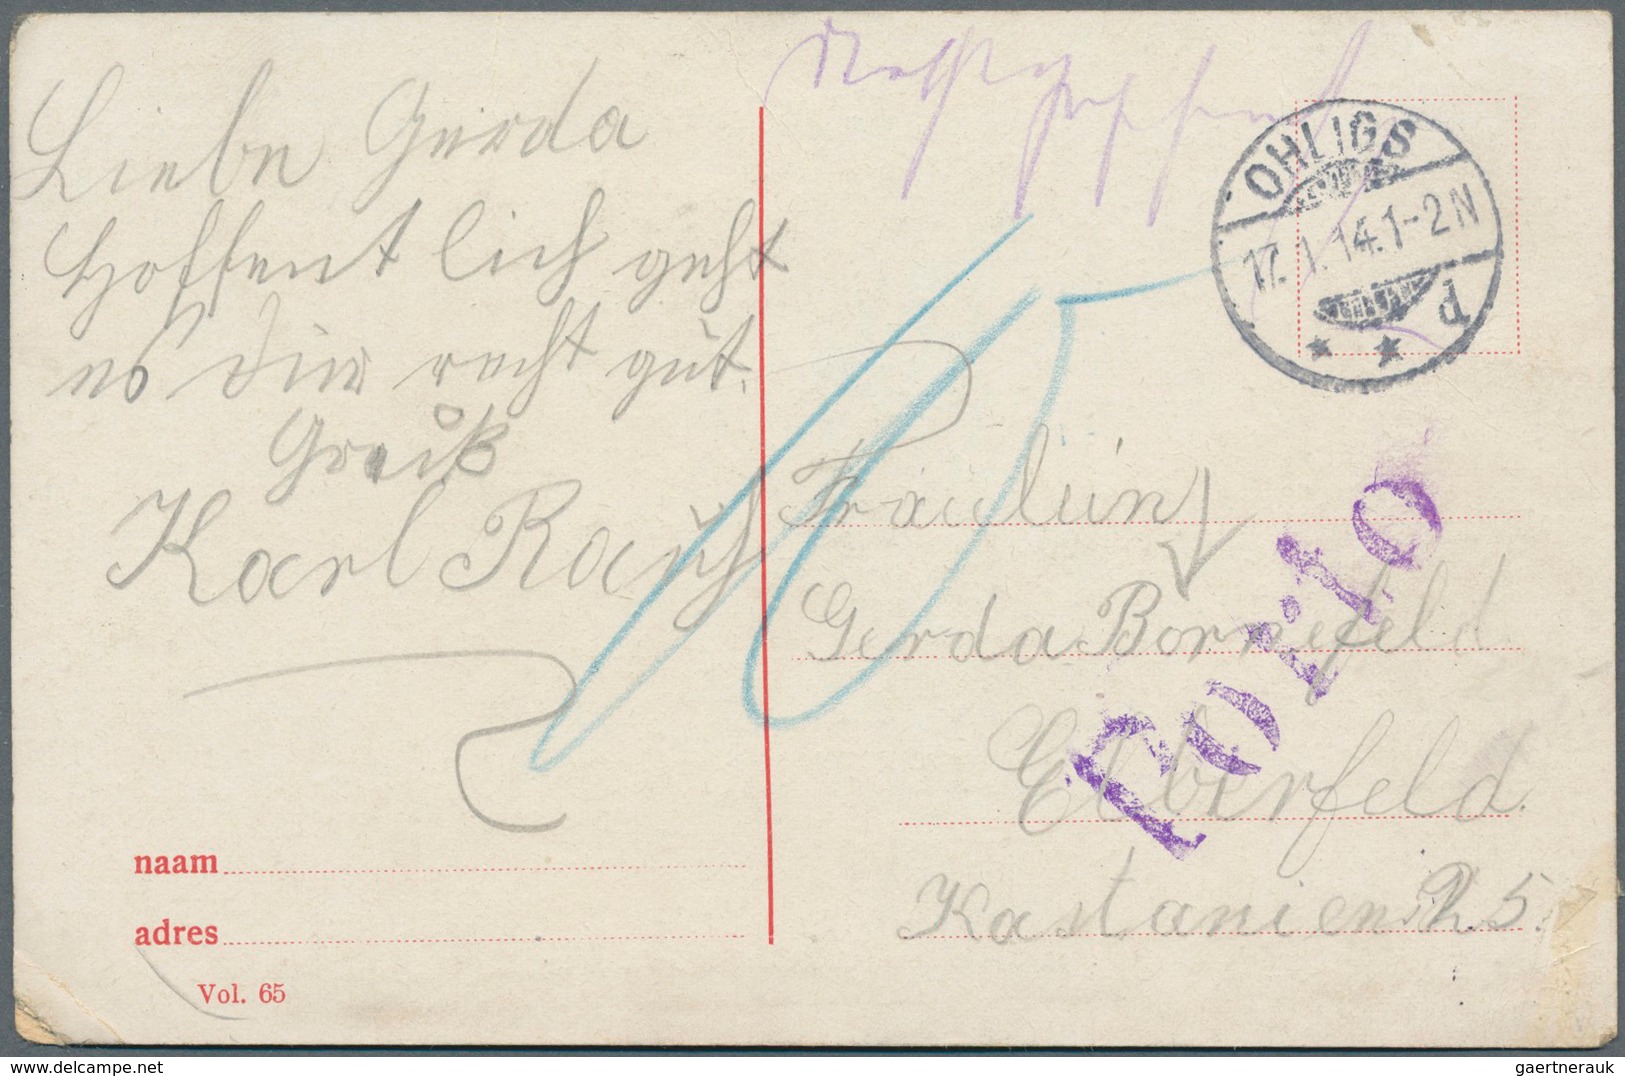 Liebe Gerda
Hoffentlich geht
es Dir recht gut.
Gruß
Karl Rauh
naam
adres
Vol. 65
OHLIGS
17.1.14.1-2N
* * d
10
Porto
Fräulein
Gerda Bornefeld
Elberfeld.
Kastanien 25.
gaertnerauk